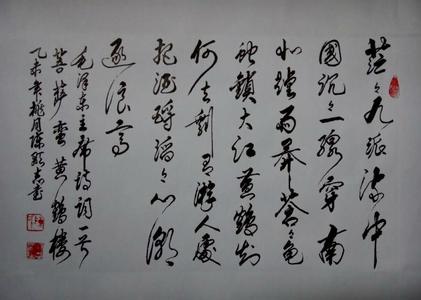 茫々九派流中
國沉々一線穿南
北煙雨莽蒼々龜
蛇鎖大江黃鶴知
何去剩有游人處
把酒酹滔々心潮
逐浪高
毛澤東主席詩詞一首
菩萨蠻黄鶴樓
乙未年桃月陈